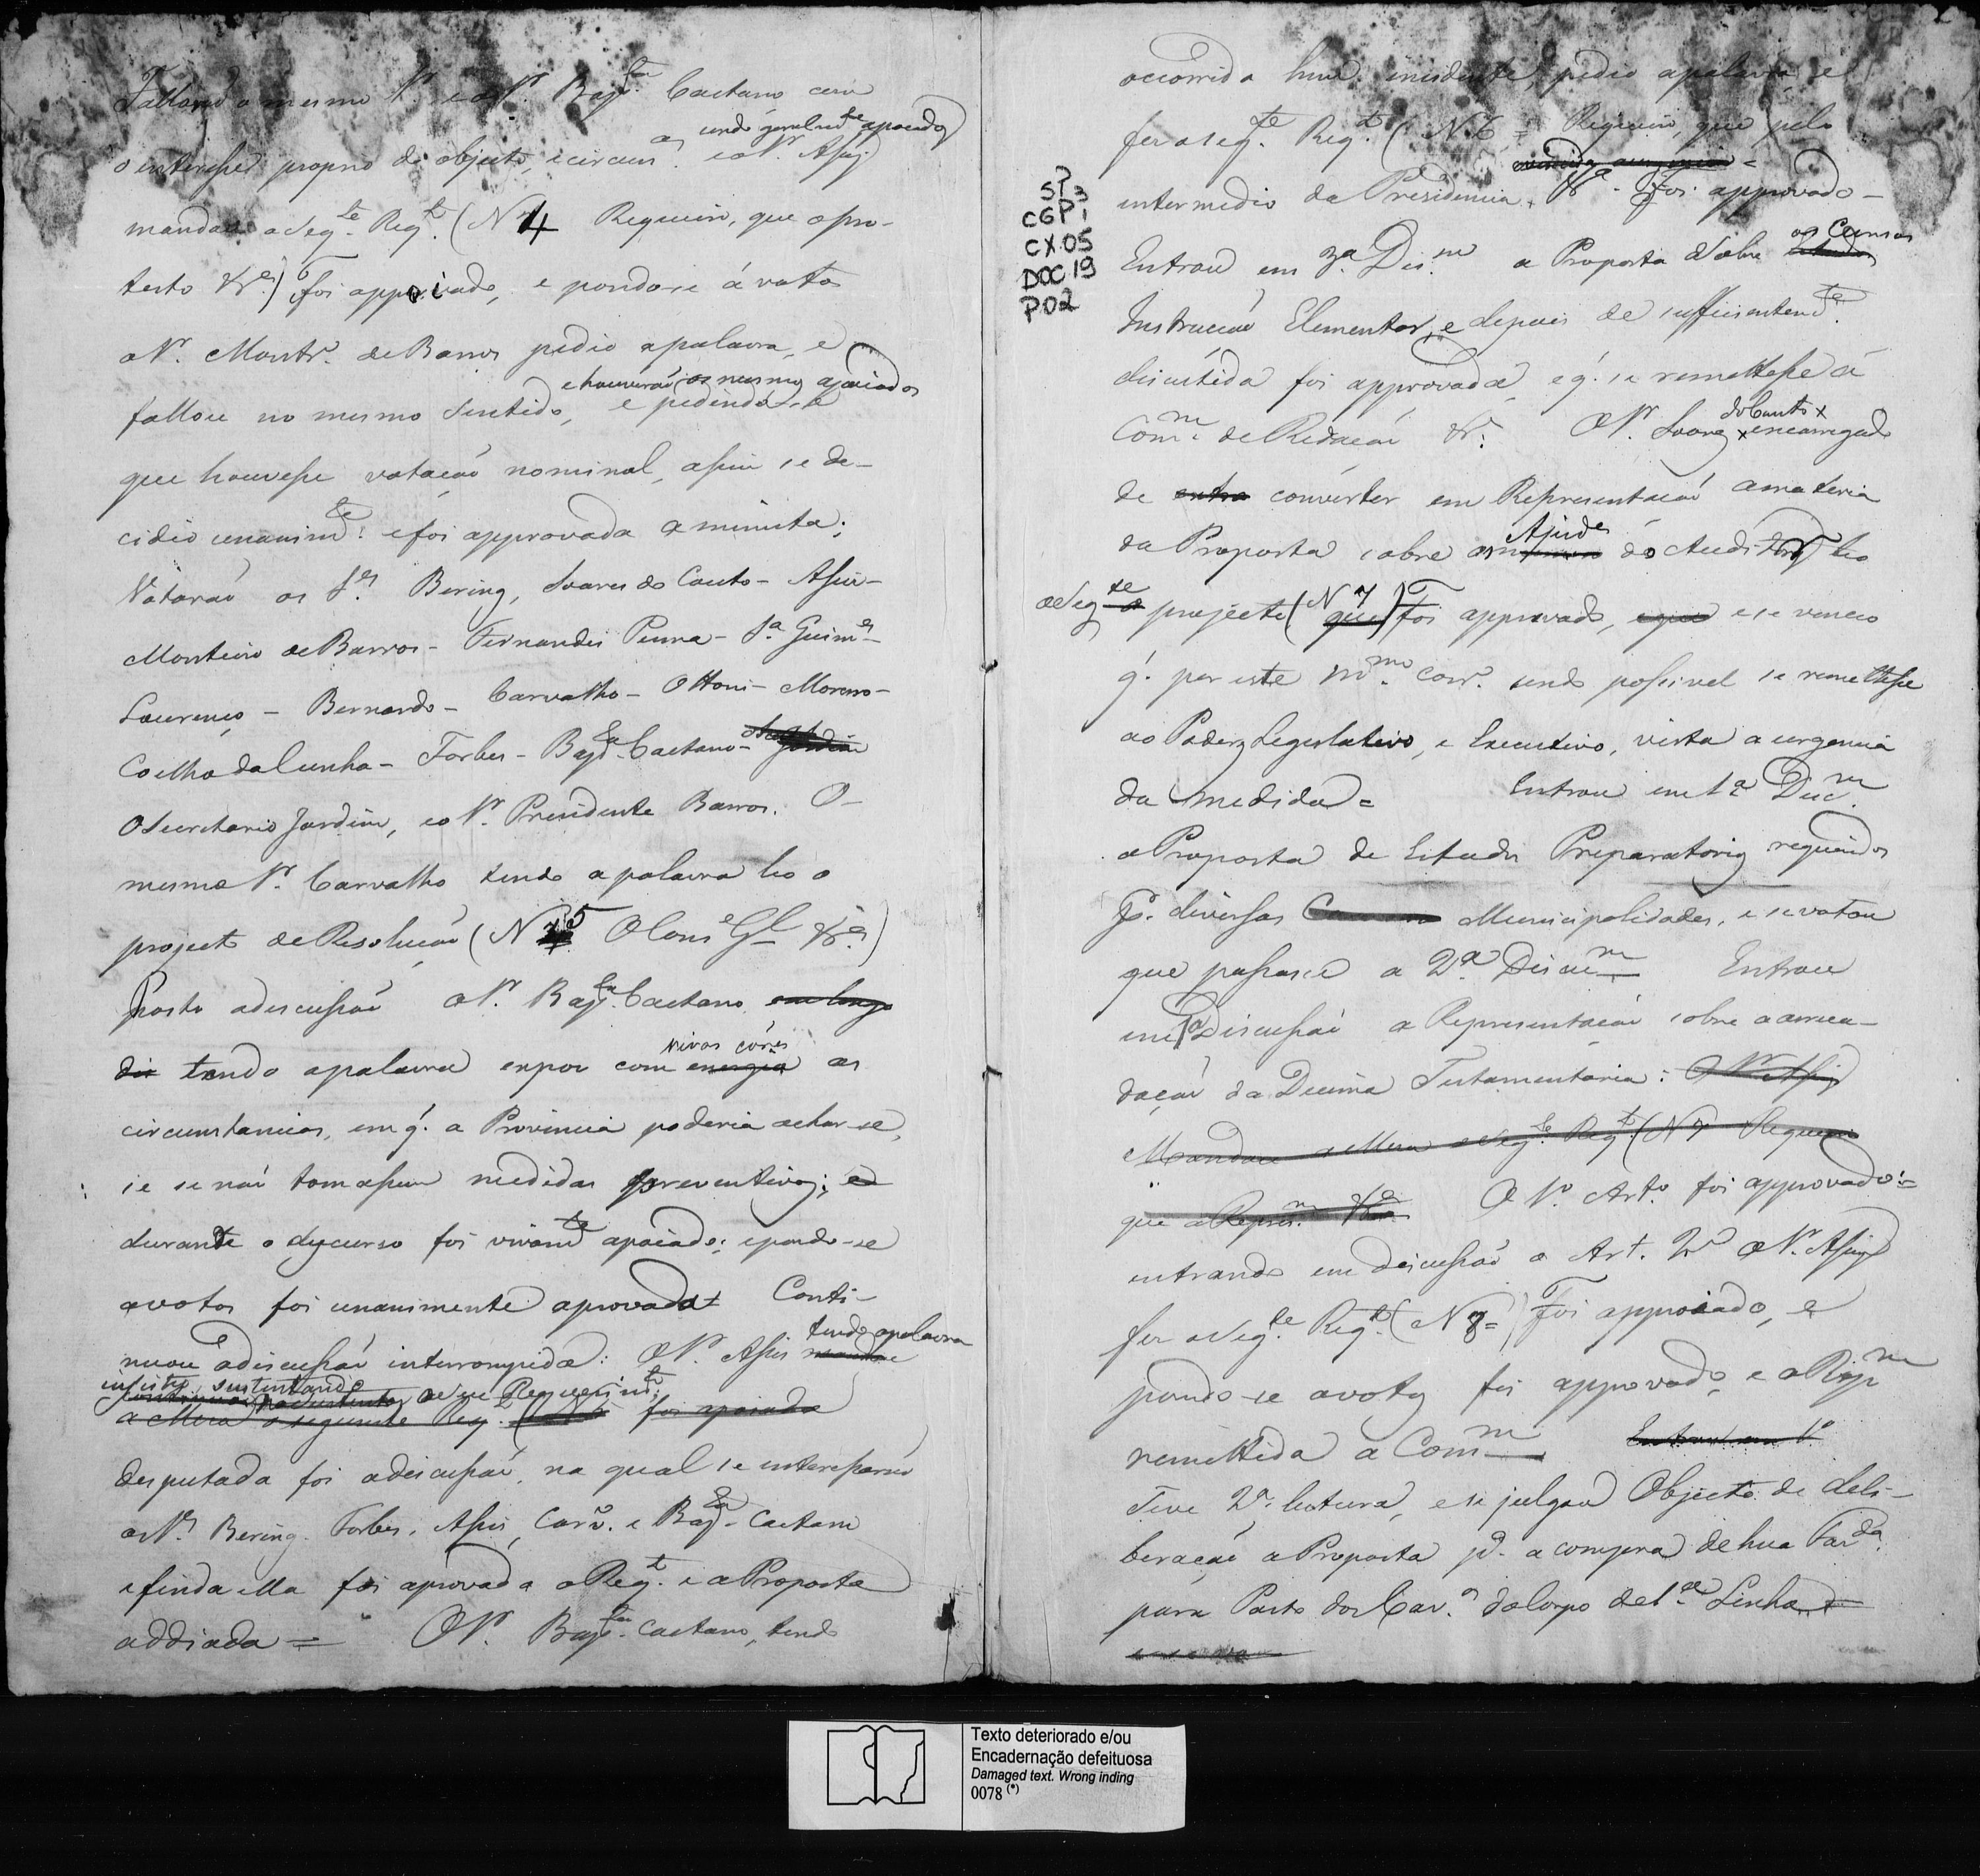 Fallando o mesmo Sr. e o Sr. Bap.ta Caetano com
sendo geralm.te apoiados
o interesse proprio do objecto, e circum.as e o Sr. Assis
mandou a seg.te Req.to (N 4 Requeiro, que o pro-
testo &a) Foi appoiado, e pondo-se á votos
o Sr. Montr.o de Barros pedio a palavra, e
e houverão os mesmos apoiados
fallou no mesmo sentido, e pedindo-se
que houvesse votação nominal, assim se de-
cidio unanim.te: e foi approvada a minuta;
Votarão os Srs. Bering, Soares do Couto - Assis -
Monteiro de Barros - Fernandes Penna - Sa. Guim.es -
Lourenço - Bernardo - Carvalho - Ottoni - Moreno -
Coelho da Cunha - Forbes - Bap.ta Caetano -
O Secretario Jardim, e o Sr. Presidente Barros. O -
mesmo Sr. Carvalho tendo a palavra leo o
projecto de Resolução (N 5 O Cons.e G.l &a)
Posto a discussão o Sr. Bap.ta Caetano em longo
dis tendo a palavra expoz com energia as
vivas côres
circumstancias, em q. a Provincia poderia achar-se,
se se não tomassem medidas preventivas; e
durante o discurso foi vivam.te apoiado; e pondo-se
a votos foi unanimente aprovada = Conti-
nuou a discussão interrompida: O Sr. Assis mandou
tendo apalavra
insistio, sustentando o seu Requerim.to;
a Mesa o seguinte Req.to foi apoiado
desputada foi a discussão, na qual se interessarão
os Srs. Bering. Forbes, Assis, Carv.o e Bap.ta Caetano
e finda ella foi aprovada o Req.to e a Proposta
addiada = O Sr. Bap.ta Caetano, tendo
occorrido hum incidente, pedio a palavra, e
fez o seg.te Req.to (N. 6 = Requeiro, que pelo
intermedio da Presidencia, &a - Foi approvado -
SP
CGP 1
CX.05
DOC 19
P02
Entrou em 3.a Dis.m a Proposta sobre Estudos
os Cursos
Instrucção Elementar, e depois de sufficientem.te
discutida foi approvada, e q. se remettesse á
Com.m de Redacção &a: O Sr. Soares x encarregado
do Couto x
de outra converter em Representação a materia
da Proposta sobre os Ajud.es do Auditor, leo
o seg.te projecto (N 7 que) Foi approvado, e que e se venceo
q. por este m.mo corr.o sendo possivel se remettesse
ao Poderes Legislativo, e Executivo, vista a urgencia
da medida = Entrou em 1a Disc.m
a Proposta de Estudos Preparatorios requeridos
p.r diversas Municipalidades, e se votou
que passasse a 2.a Discu.m Entrou
em 1a Discussão a Representação sobre a arreca-
dação da Decima Testamentaria: O Sr. Assis
Mandou a Mesa o seg.te Req.to (N 7 Requeiro
que a Repres.m &a O 1o Art.o foi approvado: =
entrando em discussão o Art. 2o O Sr. Assis
fez o seg.te Req.to (N 8 =) Foi appoiado, e
pondo-se a votos foi approvado, e a Rep.m
remettida a Com.m Entrou em 1a
Teve 2.a leitura, e se julgou Objecto de deli-
beração a Proposta p.a a compra de hua Faz.da
para Pasto dos Cav.os do Corpo de 1.a Linha.
Texto deteriorado e/ou
Encadernação defeituosa
Damaged text. Wrong inding
0078 (*)